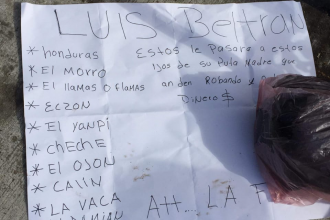 LUIS BelTRON
* honduras
* El MoRRo
* El llamas o flamas
* Eczon
* El YanPi
* CHeCHe
* El OSON
* CALIN
* LA VACA
Estos le Pasara a estos
ijos de su Puta Madre que
anden Robando y
Dinero $
Att... LA F